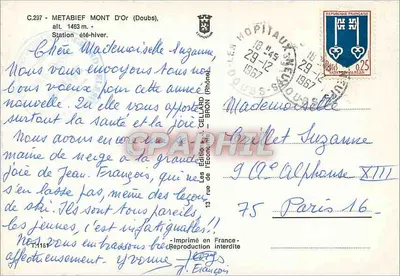 C.297 - METABIEF MONT D'Or (Doubs),
alt. 1463 m. -
Station été-hiver.
Chère Mademoiselle Suzanne,
Nous vous envoyons tous nos
bons voeux pour cette année
nouvelle. Qu'elle vous apporte
surtout la santé et la joie.
Nous avons encore
maine de neige à la grande
joie de Jean-François, qui ne
s'en lasse pas, même des leçons
de ski. Ils sont tous pareils
les jeunes, c'est infatigable!!
Nous vous embrassons bien
affectueusement. Yvonne
J. François
CELLARD
BRON (Rhône)
Imprimé en France -
Reproduction interdite
LES HOPITAUX-NEUFS
DOUBS
18 H 45
29-12
1967
18 H 45
29-12
1967
REPUBLIQUE FRANÇAISE
0,25
Mademoiselle
Caillet Suzanne
9 Av. Alphonse XIII
75 Paris 16
PHILAPHIL